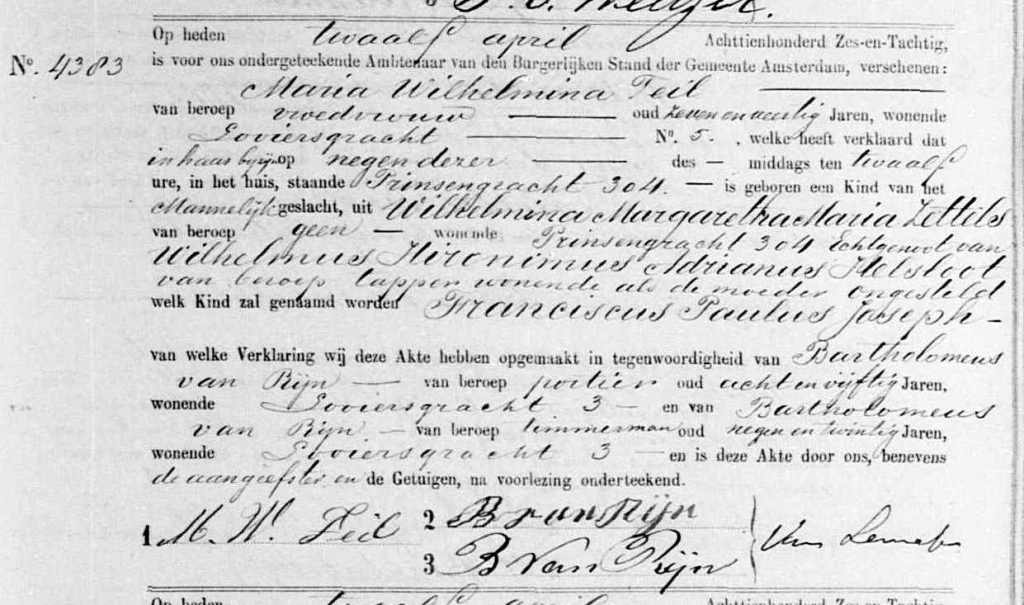 Op heden twaalf april Achttienhonderd Zes-en-Tachtig,
No. 4383
is voor ons ondergeteekende Ambtenaar van den Burgerlijken Stand der Gemeente Amsterdam, verschenen:
Maria Wilhelmina Feil
van beroep vroedvrouw oud zeven en veertig Jaren, wonende
Looiersgracht No. 5. , welke heeft verklaard dat
in haar bijzijn op negen dezer des — middags ten twaalf
ure, in het huis, staande Prinsengracht 304. — is geboren een Kind van het
Mannelijk geslacht, uit Wilhelmina Margaretha Maria Zettils
van beroep geen — wonende Prinsengracht 304 Echtgenoot van
Wilhelmus Hironimus Adrianus Helsloot
van beroep tapper wonende als de moeder ongesteld
welk Kind zal genaamd worden Franciscus Paulus Joseph —
van welke Verklaring wij deze Akte hebben opgemaakt in tegenwoordigheid van Bartholomeus
van Rijn — van beroep portier oud acht en vijftig Jaren,
wonende Looiersgracht 3 — en van Bartholomeus
van Rijn — van beroep timmerman oud negen en twintig Jaren,
wonende Looiersgracht 3 — en is deze Akte door ons, benevens
de aangeefster en de Getuigen, na voorlezing onderteekend.
1 M. W. Feil 2 B van Rijn
3 B van Rijn
Op heden twaalf april Achttienhonderd Zes-en-Tachtig,